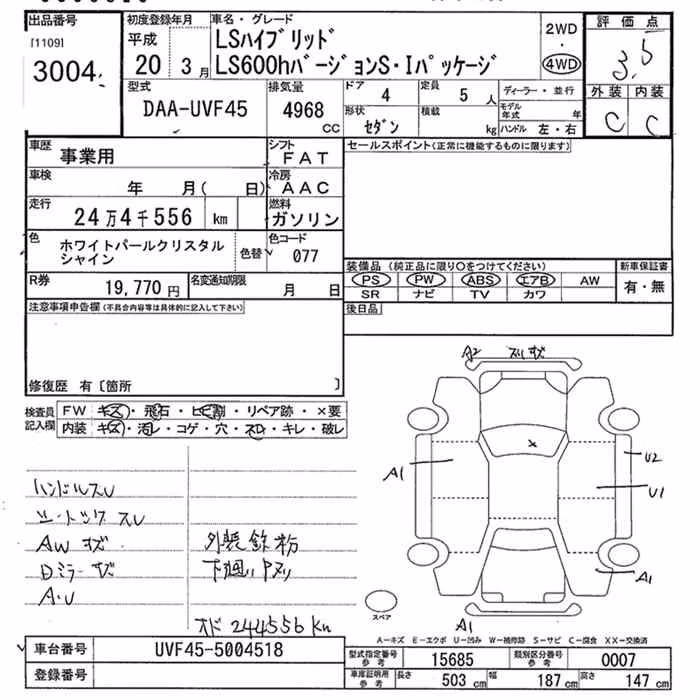 出品番号
[1109]
3004
初度登録年月
平成
20 3月
車名・グレード
LSハイブリッド
LS600hバージョンS・Iパッケージ
2WD
・
4WD
評価点
3.5
外装 内装
C C
型式
DAA-UVF45
排気量
4968
CC
ドア 4
定員 5 人
形状 セダン
積載 kg
ディーラー・並行
モデル年式 年
ハンドル 左・右
車歴 事業用
シフト FAT
車検 年 月( 日)
冷房 AAC
走行 24万4千556 km
燃料 ガソリン
色 ホワイトパールクリスタルシャイン
色替
色コード 077
R券 19,770円
名変通知期限 月 日
セールスポイント(正常に機能するものに限ります)
装備品 (純正品に限り○をつけてください)
PS PW ABS エアB AW
SR ナビ TV カワ
新車保証書
有・無
後日品
注意事項申告欄(不具合内容等は具体的に記入して下さい)
修復歴 有〔箇所 〕
検査員記入欄
FW キズ・飛石・ヒビ割・リペア跡・×要
内装 キズ・汚レ・コゲ・穴・スレ・キレ・破レ
ハンドルスレ
シートックスレ
AW キズ
Dミラーキズ
A・U
外装鉄粉
下廻りサビ
オド 244556 Kn
A2 スリキズ
A1
U2
U1
A1
A1
スペア
A―キズ E―エクボ U―凹み W―補修跡 S―サビ C―腐食 XX―交換済
車台番号 UVF45-5004518
登録番号
型式指定番号 参考 15685
類別区分番号 参考 0007
車庫証明用 参考
長さ 503 cm
幅 187 cm
高さ 147 cm